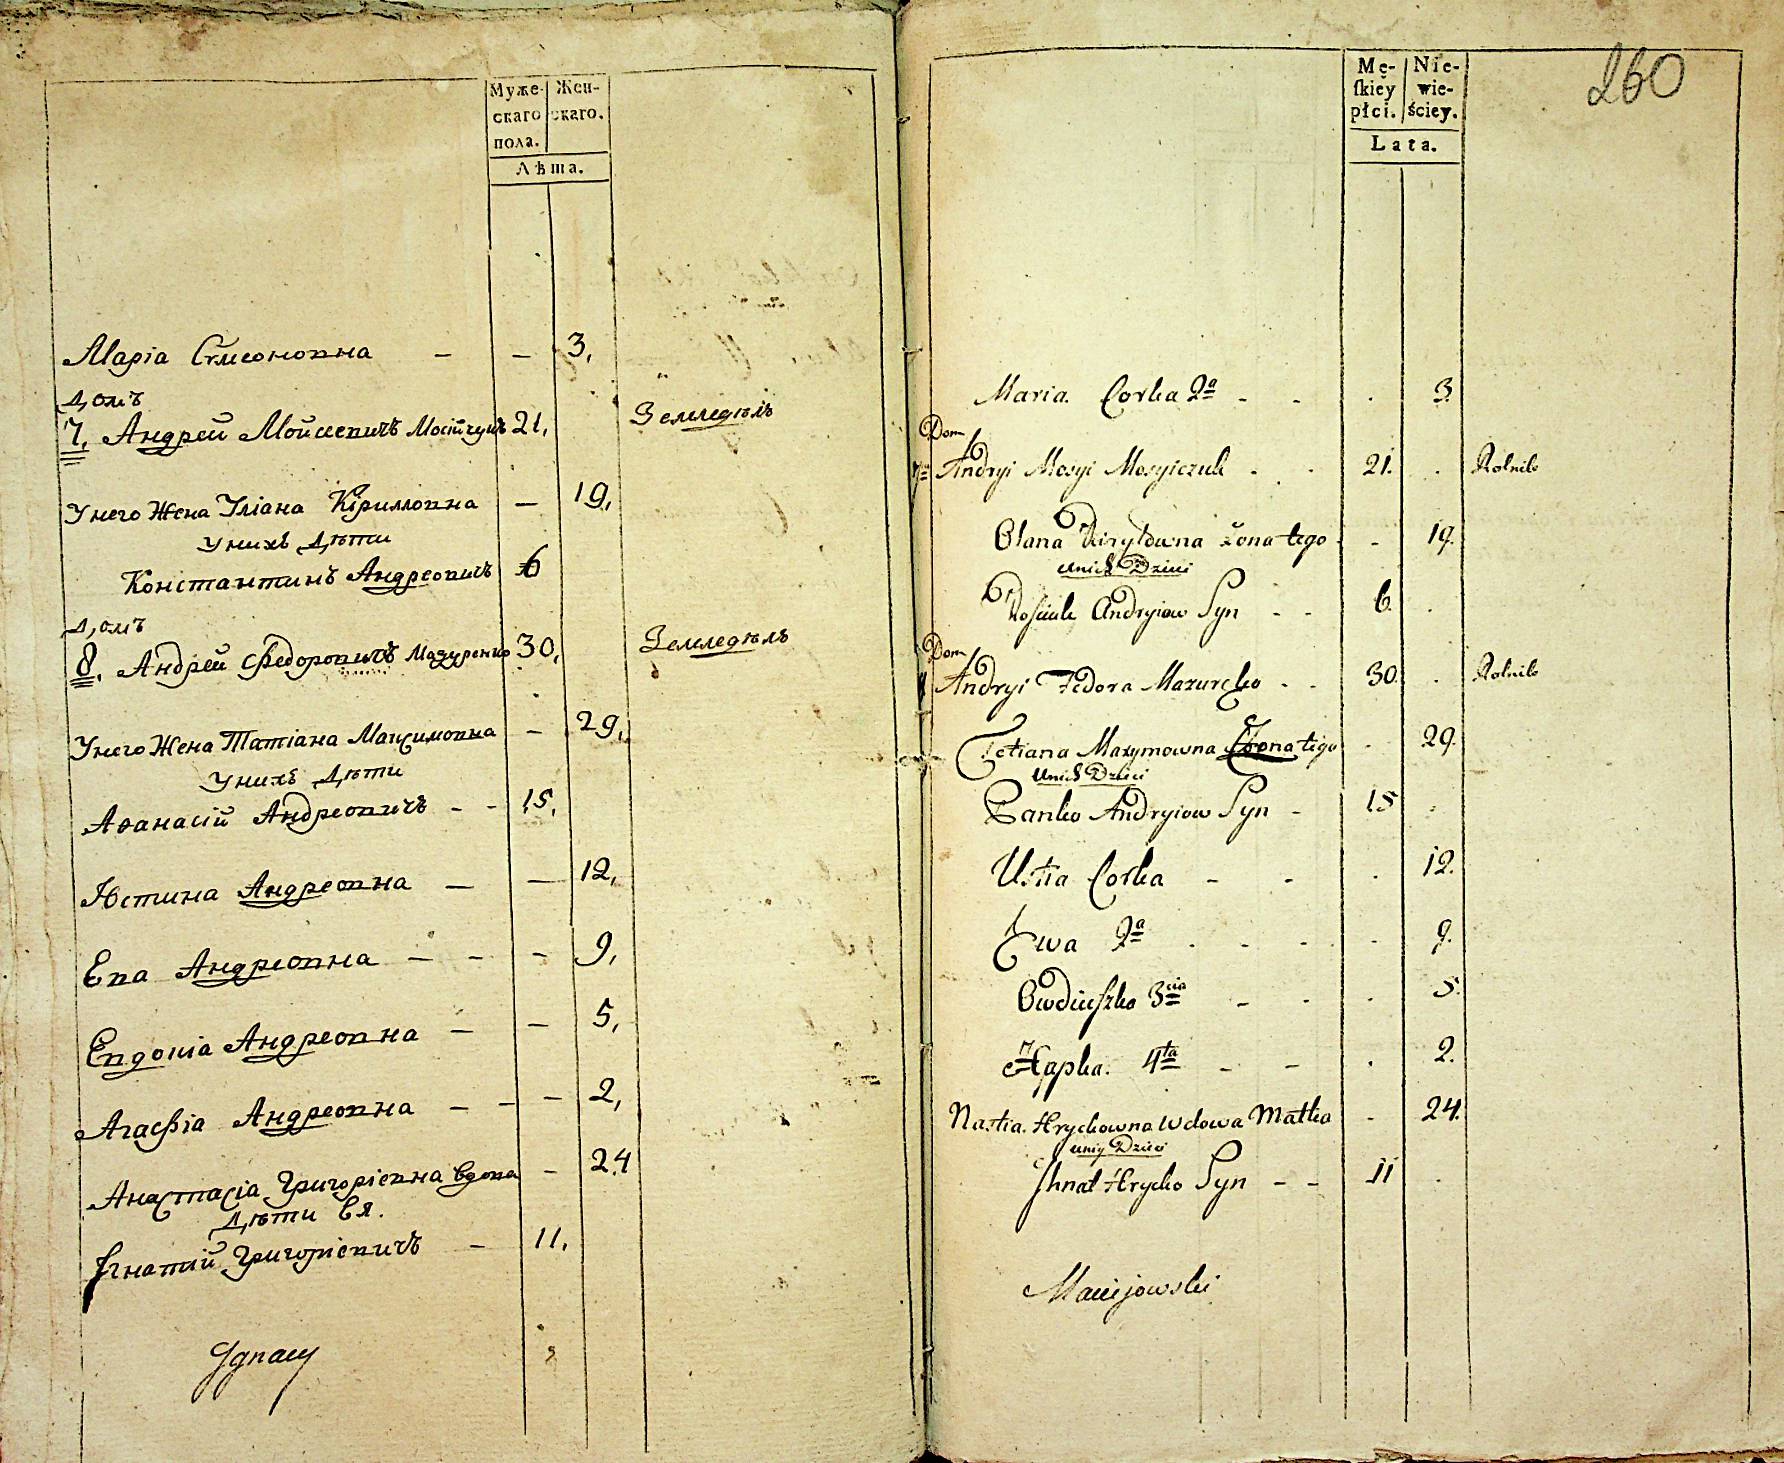 Муже- Жен-
скаго скаго.
пола.
Лѣта.
Марія Сѵмеоновна — — 3,
Домъ
7. Андрей Мойсеевичъ Мосійчукъ 21, Земледѣлъ
У него Жена Уліана Кіриловна — 19,
У нихъ Дѣти
Константинъ Андреовичъ 6
Домъ
8. Андрей Федоровичъ Мазуренко 30, Земледѣлъ
У него Жена Татіана Максимовна — 29,
У нихъ Дѣти
Аѳанасій Андреовичъ - - 15,
Юстина Андреовна — — 12,
Ева Андреовна — - - 9,
Евдокіа Андреовна — — 5,
Агафіа Андреовна — - — 2,
Анастасіа Григоріевна вдова - 24
Дѣти Ея.
Ігнатій Григоріевичъ — 11,
Ignacy
260
Mę- Nie-
skiey wie-
płci. ściey.
Lata.
Maria Corka 2a - - . 3
Dom
7ż Andryi Mosyi Mosyiczuk . . 21. . Rolnik
Olana Kiryłowna żona tego . - 19.
u nich Dzieci
Kościuk Andryiow Syn - - 6. .
Dom
Andryi Fedora Mazurcko . . 30. . Rolnik
Tetiana Maxymowna żona tego . 29.
u nich Dzieci
Panko Andryiow Syn - 15 .
Ustia Corka - - . 12.
Ewa 2a . - - - 9.
Owdiuszka 3cia - - . 5.
Hapka. 4ta - - . 2.
Nastia Hryckowna Wdowa Matka - 24.
u niey Dzieci
Ihnat Hrycko Syn - - 11 .
Maciejowski